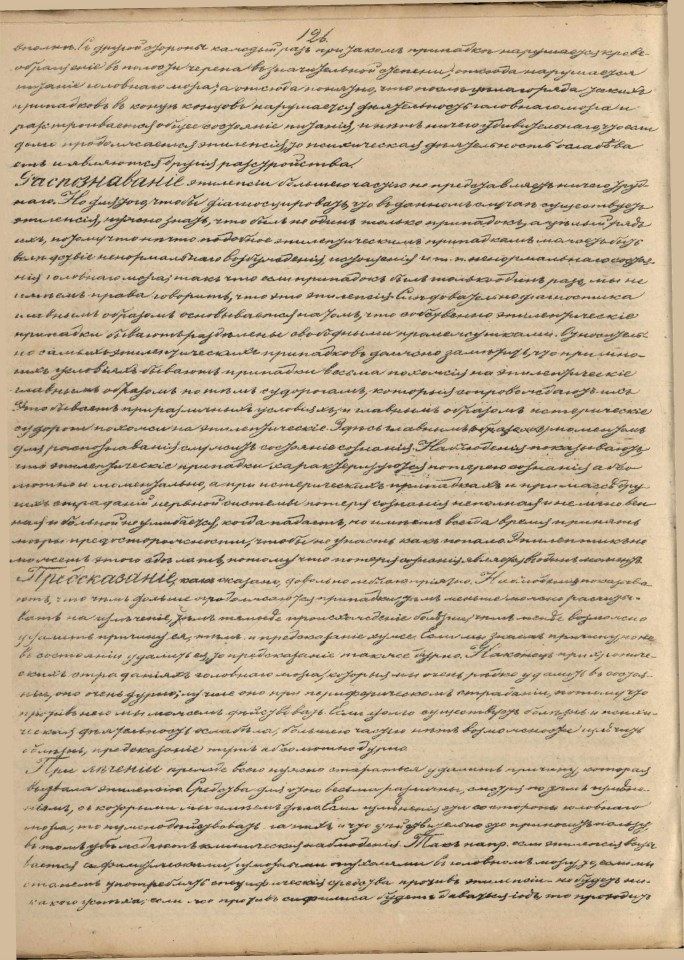 126.
вполнѣ. Съ другой стороны каждый разъ при такомъ припадкѣ нарушается крово-
обращеніе въ полости черепа въ значительной степени, отсюда нарушается
питаніе головнаго мозга; а отсюда понятно, что послѣ цѣлаго ряда такихъ
припадковъ въ концѣ концовъ нарушается дѣятельность головнаго мозга и
разстроивается общее состояніе питанія, и нѣтъ ничего удивительнаго, что если
долго продолжается эпилепсія, то психическая дѣятельность ослабѣва
етъ и являются другія разстройства.
Распознаваніе эпилепсіи большею частью не представляетъ ничего труд
наго. Но для того, чтобы діагносцировать, что въ данномъ случаѣ существуетъ
эпилепсія, нужно знать, что былъ не одинъ только припадокъ, а цѣлый рядъ
ихъ, потому что нѣчто подобное эпилептическимъ припадкамъ можетъ быть
вслѣдствіе ненормальнаго возбужденія, истощенія и т. п. ненормальнаго состоя-
нія головнаго мозга; такъ что если припадокъ былъ только одинъ разъ, мы не
имѣемъ права говорить, что это эпилепсія. Слѣдовательно діагностика
главнымъ образомъ основывается на томъ, что собственно эпилептическіе
припадки бываютъ раздѣлены свободными промежутками. Относитель-
но самыхъ эпилептическихъ припадковъ должно замѣтить, что при мно-
гихъ условіяхъ бываютъ припадки весьма похожія на эпилептическіе
главнымъ образомъ по тѣмъ судорогамъ, которыя сопровождаютъ ихъ
Это бываетъ при различныхъ условіяхъ, и главнымъ образомъ истерическіе
судороги похожи на эпилептическіе. Здѣсь главнымъ моментомъ
для распознаванія служитъ состояніе сознанія. Наблюденія показываютъ
что эпилептическіе припадки характеризуются потерею сознанія абсо
лютно и моментально, а при истерическихъ припадкахъ и при массѣ дру
гихъ страданій нервной системы потеря сознанія неполная и не мгновен
ная и больной не ушибается, когда падаетъ, но имѣетъ всегда время принять
мѣры предосторожности, чтобы не упасть какъ попало. Эпилептикъ не
можетъ этого сдѣлать, потому что потеря сознанія является въ одинъ моментъ
Предсказаніе, сказано, довольно неблагопріятно. Наблюденія показыва
ютъ, что чѣмъ дольше продолжаются припадки, тѣмъ меньше можно расчиты-
вать на излѣченіе, происхожденіе болѣзни, чѣмъ менѣе возможно
удалить причину ея, тѣмъ и предсказаніе хуже. Если мы знаемъ причину и не
въ состояніи удалить ея, то предсказаніе также дурно. Наконецъ при хрониче-
скихъ страданіяхъ головнаго мозга, которыя мы очень рѣдко удалить въ состоя-
ніи, оно очень дурно; лучше оно при периферическомъ страданіи, потому что
противъ него мы можемъ дѣйствовать. Если долго существуетъ болѣзнь и психи-
ческая дѣятельность ослабѣла, большею частью нѣтъ возможности излѣчить
болѣзнь, предсказаніе тутъ абсолютно дурно.
При лѣченіи прежде всего нужно стараться удалить причину, которая
вызвала эпилепсію. Средства для этого весьма различны, смотря по тѣмъ измѣне-
ніямъ, съ которыми мы имѣемъ дѣло. Если измѣненія эти со стороны головнаго
мозга, то нужно дѣйствовать на нихъ и что дѣйствительно это приноситъ пользу,
въ томъ убѣждаютъ клиническія наблюденія. Такъ напр. если эпилепсія вызы
вается сифилитическими гуммозными опухолями въ головномъ мозгу, то, если мы
станемъ употреблять специфическія средства противъ эпилепсіи – не будетъ ни-
какого успѣха; если же противъ сифилиса будетъ давать іодъ, то проводить